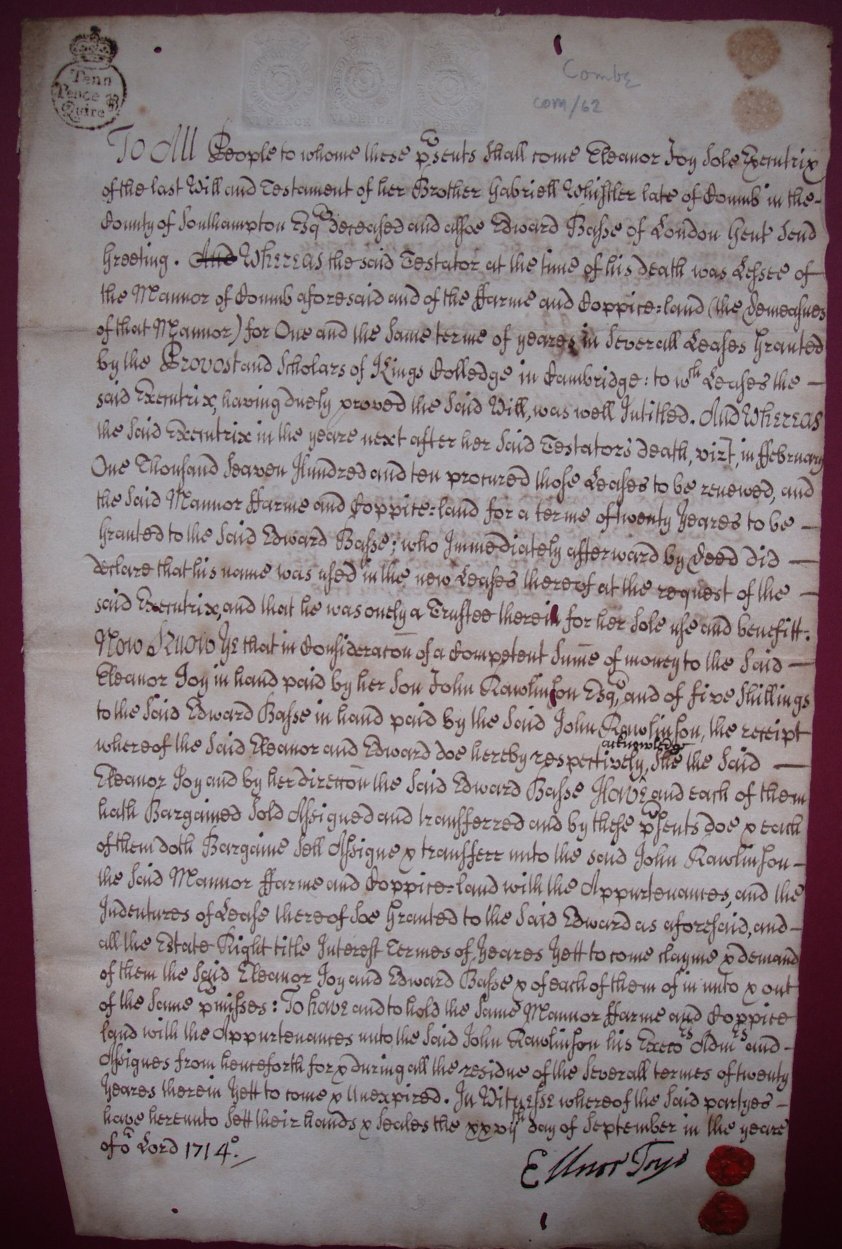 Tenn
Pence p
Quire
Combe
COM/62
To All People to whome these p'sents shall come Eleanor Joy Sole Executrix
of the last Will and Testament of her Brother Gabriell Whistler late of Comb in the
County of Southampton Esqr deceased and allsoe Edward Basse of London Gent Send
Greeting. And Whereas the said Testator at the time of his death was Lessee of
the Mannor of Comb aforesaid and of the ffarme and Coppice-land (the Demeasnes
of that Mannor) for One and the same terme of yeares in Severall Leases Granted
by the Provost and Scholars of Kings Colledge in Cambridge: to wch Leases the
said Executrix, having duely proved the Said Will, was well Intitled. And Whereas
the Said Executrix in the yeare next after her Said Testators death, vizt, in ffebruary
One Thousand Seaven Hundred and ten procured those Leases to be renewed, and
the Said Mannor ffarme and Coppice-land for a terme of twenty Yeares to be
Granted to the Said Edward Basse; who Immediately afterward by Deed did
declare that his name was used in the new Leases thereof at the request of the
said Executrix, and that he was onely a Trustee therein for her Sole use and benefitt.
Now Know Ye that in Consideracon of a Competent Summe of money to the Said
Eleanor Joy in hand paid by her Son John Rawlinson Esqr, and of five Shillings
to the Said Edward Basse in hand paid by the Said John Rawlinson, the receipt
acknowledge
whereof the Said Eleanor and Edward doe hereby respectively, She the Said
Eleanor Joy and by her direccon the Said Edward Basse Have and each of them
hath Bargained Sold Assigned and transferred and by these p'sents doe & each
of them doth Bargaine Sell Assigne & transferr unto the said John Rawlinson
the Said Mannor ffarme and Coppice-land with the Appurtenances, and the
Indentures of Lease thereof Soe Granted to the Said Edward as aforesaid, and
all the Estate Right title Interest Termes of Yeares Yett to come clayme & demand
of them the Said Eleanor Joy and Edward Basse & of each of them of in unto & out
of the Same p'misses: To have and to hold the Same Mannor ffarme and Coppice
land with the Appurtenances unto the Said John Rawlinson his Execrs Admrs and
Assignes from henceforth for & during all the residue of the Severall termes of twenty
Yeares therein Yett to come & Unexpired. In Witnesse whereof the Said partyes
have hereunto Sett their hands & Seales the xxviith day of September in the yeare
of or Lord 1714.
Ellnor Joye